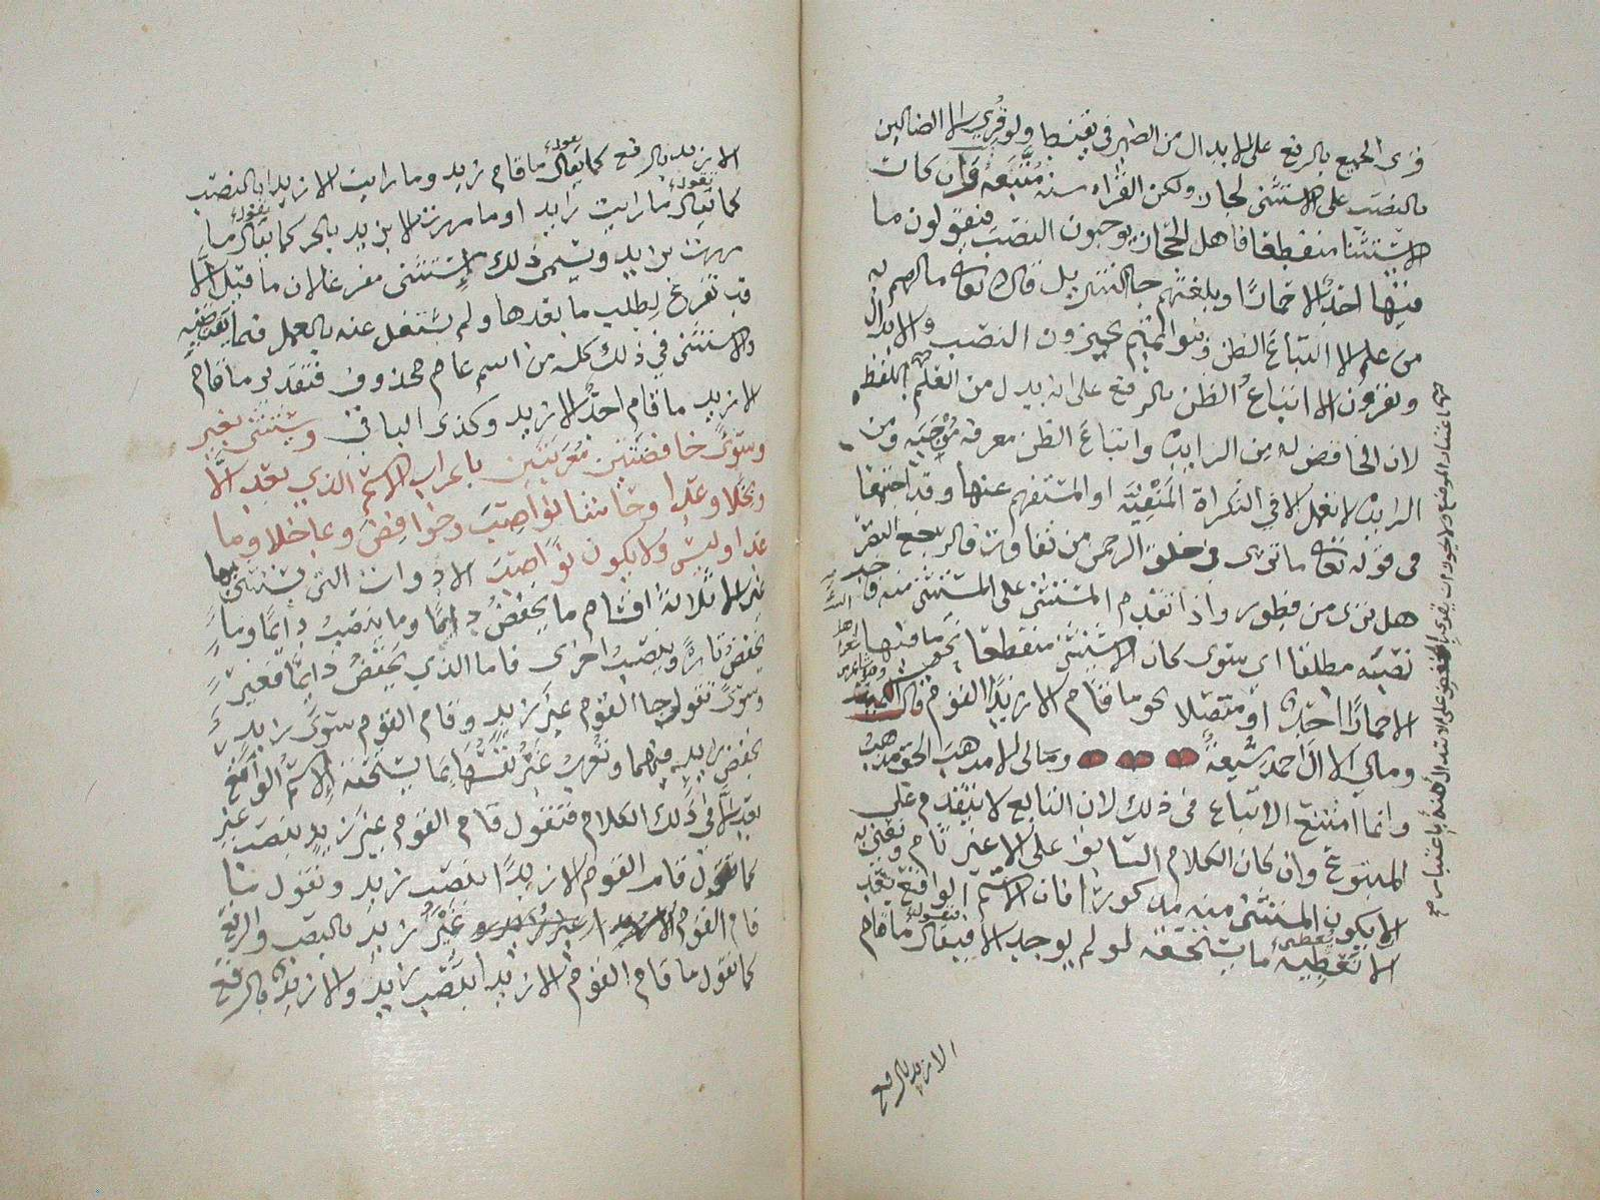 قرى الجميع بالرفع على الابدال من الضمير في يقنط ولو قرى الا الضالين
بالنصب على الاستثنى لجاز ولكن القراه سنه متبعه وان كان
الاستثنا منقطعا فاهل الحجاز يوجبون النصب فيقولون ما
فيها احد الا حمارا وبلغتهم جا التنزيل قال الله تعالى مالهم به
من علم الا اتباع الظن وبنوا تميم يجيزون النصب والابدال
ويقرون الا اتباع الظن بالرفع على انه بدل من العلم اللفظ
لان الخافض له من الزايده واتباع الظن معرفه موجبه ومن
الزايده لا تعمل الا في النكراة المنفيه او المستفهم عنها وقد اجتمعا
في قوله تعالى ماترى في خلق الرحمن من تفاوت فارجع البصر
هل ترى من فطور واذا تقدم المستثنى على المستثنى منه
نصبه مطلقا اي سوى كان الاستثنى منقطعا نحو ما فيها
الا حمارا احد او متصلا نحو ما قام الا زيدا القوم قال الكميت
ومالي الا ال احمد شيعة ومالى الا مذهب الحق مذهب
وانما امتنع الاتباع في ذلك لان التابع لا يتقدم على
المتبوع وان كان الكلام السابق على الا غير تام ونعني به
الا يكون المستثنى منه مذكورا فان الاسم الواقع بعد
الا تعطيه ما يستحقه لو لم يوجد الا فيقال ما قام
الا زيد بالرفع
الا زيد بالرفع كما يقال ما قام زيد وما رايت الا زيدا بالنصب
كما يقال ما رايت زايد او ما مررت الا بزيد بالجر كما يقال ما
مررت بزايد ويسمى ذلك استثنى مفرغا لان ما قبل الا
قد تفرغ لطلب ما بعدها ولم يشتغل عنه بالعمل فيما يقتضيه
والاستثنى في ذلك كله من اسم عام محذوف فتقدير ما قام
الا زيد ما قام احد الا زيد وكذى الباقي ويستثنى بغير
وسوى خافضتين معربتين باعراب الاسم الذي بعد الا
وبخلا وعدا وحاشا نواصب وخوافض وبما خلا وما
عدا وليس ولا يكون نواصب الادوات التي يستثنى بها
غير الا ثلاثة اقسام ما يخفض دايما وما ينصب دايما وما
يخفض تارة وينصب اخرى فاما الذي يخفض دايما فغير
وسوى تقول جا القوم غير زيد وقام القوم سوى زايد
بخفض زايد فيهما وتعرب غير نفسها بما يستحقه الاسم الواقع
بعد الا في ذلك الكلام فتقول قام القوم غير زيد بنصب غير
كما تقول قام القوم الا زيدا بنصب زيد وتقول ما
قام القوم غير زيد بالنصب والرفع
كما تقول ما قام القوم الا زيدا بنصب زايد والا زيد بالرفع